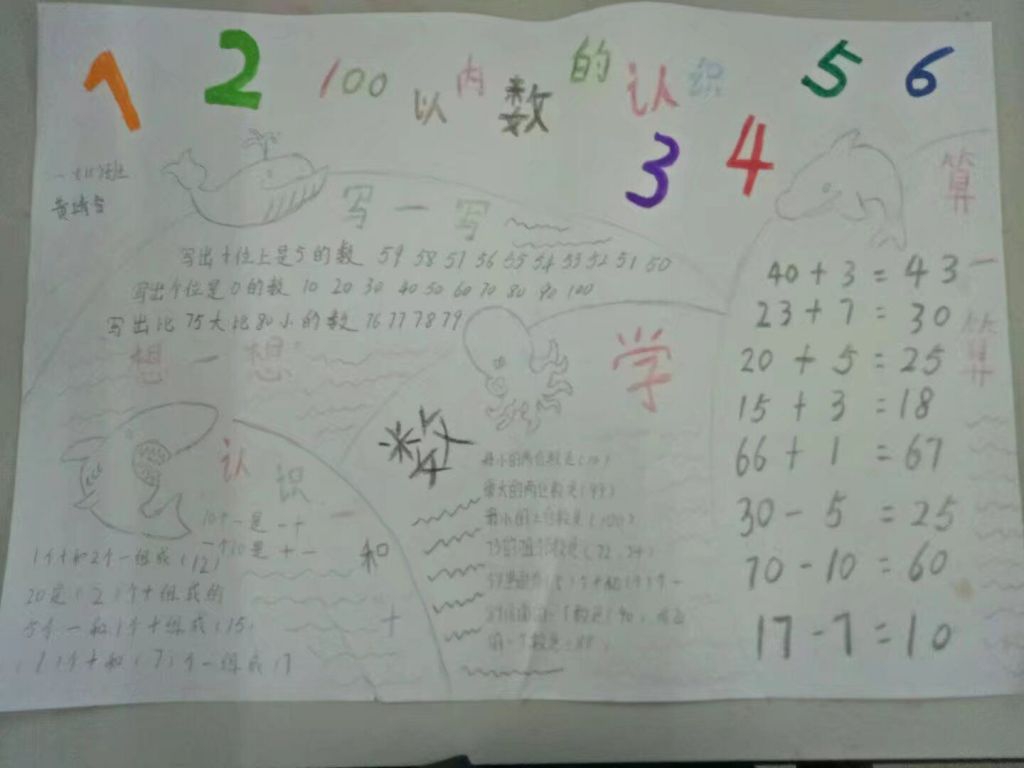 1 2 100以内数的认识 5 6
3 4
写一写
写出十位上是5的数 59 58 57 56 55 54 53 52 51 50
写出个位是0的数 10 20 30 40 50 60 70 80 90 100
写出比75大比80小的数 76 77 78 79
想一想
认识一和十
10个一是一十
1个十和2个一组成(12)
20是(2)个十组成的
5个一和1个十组成(15)
(1)个十和(7)个一组成17
数学
最小的两位数是(10)
最大的两位数是(99)
最小的三位数是(100)
算一算
40+3=43
23+7=30
20+5=25
15+3=18
66+1=67
30-5=25
70-10=60
17-7=10